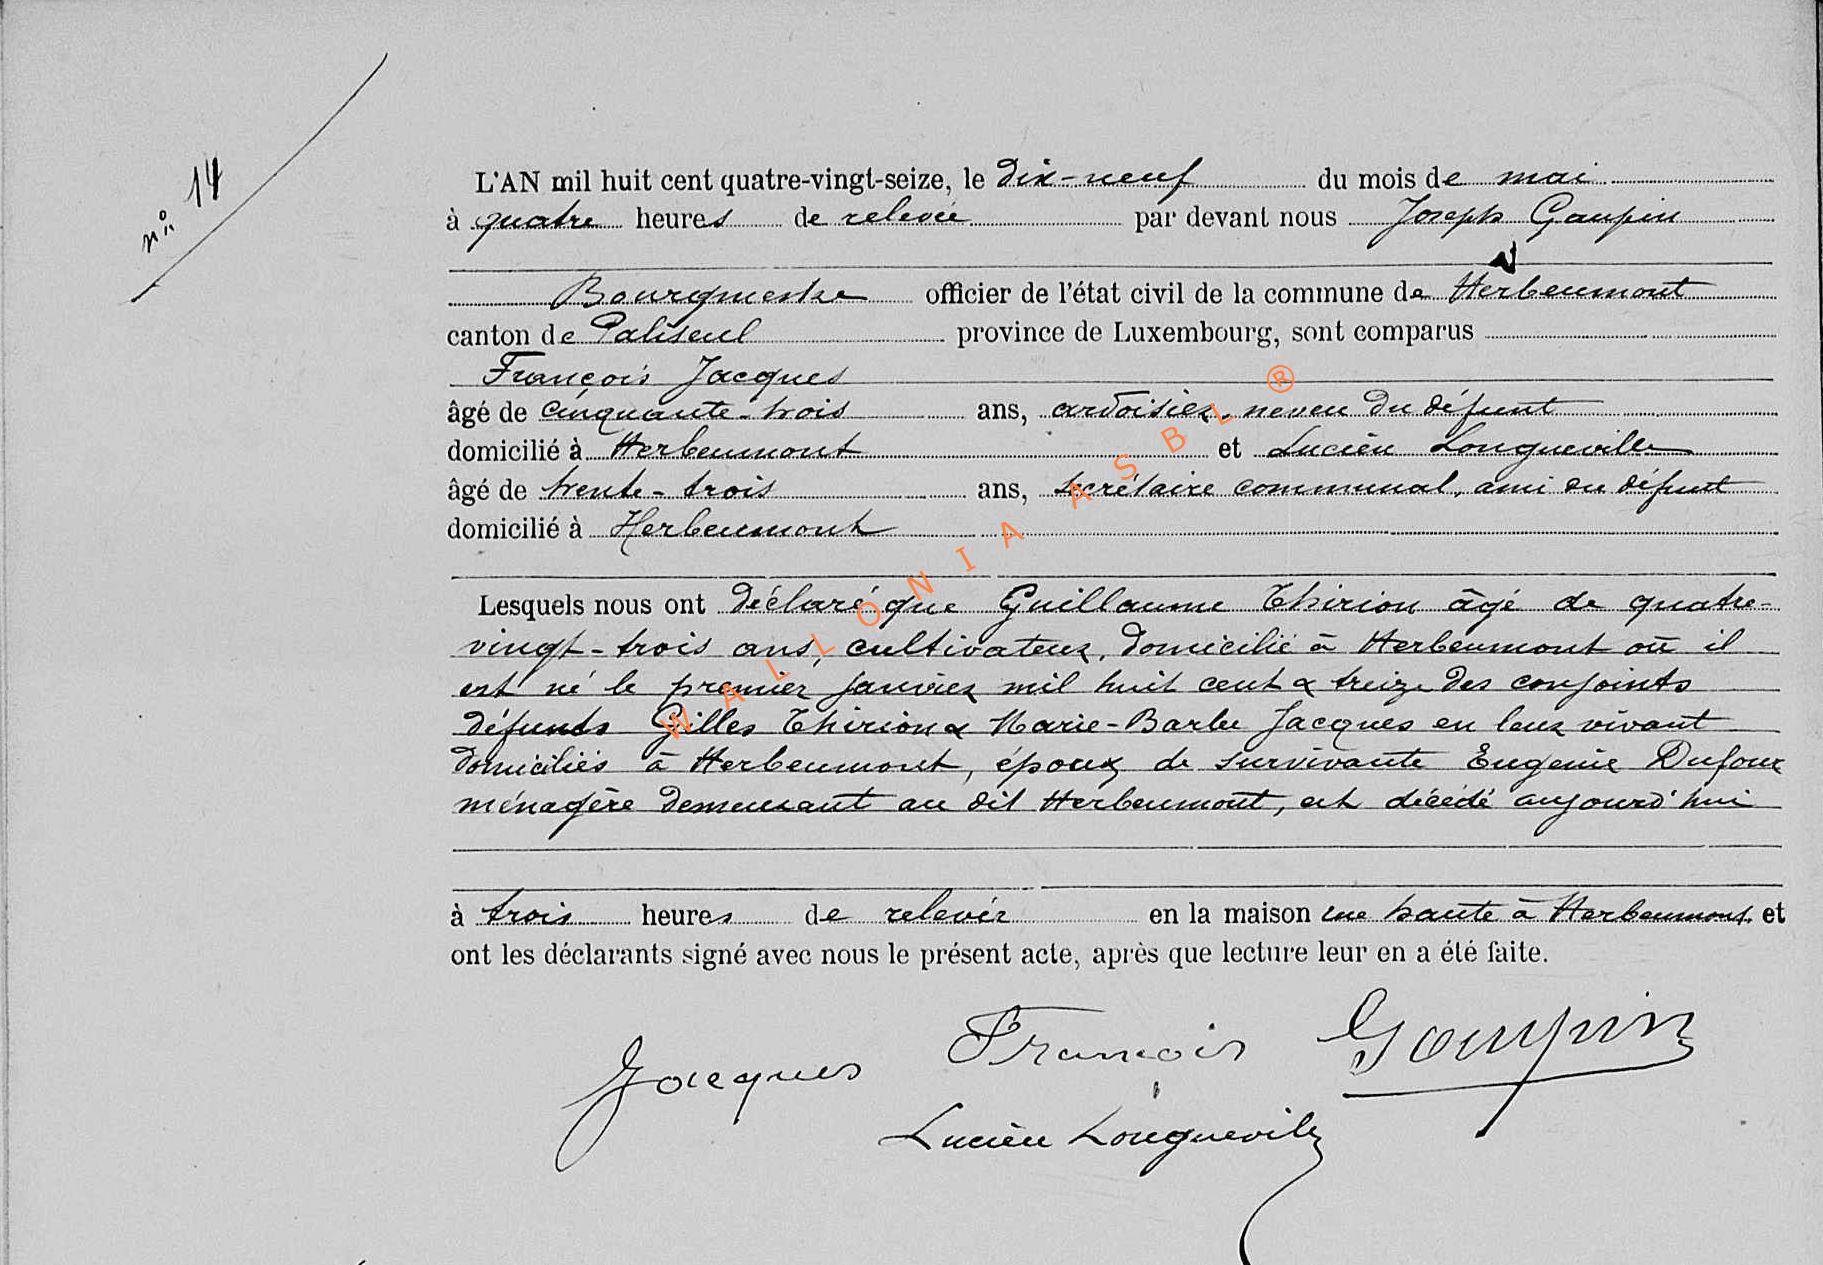 nº 14
L'AN mil huit cent quatre-vingt-seize, le dix-neuf du mois de mai
à quatre heures de relevée par devant nous Joseph Gaupin
Bourgmestre officier de l'état civil de la commune de Herbeumont
canton de Paliseul province de Luxembourg, sont comparus
François Jacques
âgé de cinquante-trois ans, ardoisier, neveu du défunt
domicilié à Herbeumont et Lucien Longueville
âgé de trente-trois ans, secrétaire communal, ami du défunt
domicilié à Herbeumont
Lesquels nous ont déclaré que Guillaume Thirion âgé de quatre-
vingt-trois ans, cultivateur, domicilié à Herbeumont où il
est né le premier janvier mil huit cent & treize des conjoints
défunts Gilles Thirion & Marie-Barbe Jacques en leur vivant
domiciliés à Herbeumont, époux de survivante Eugénie Dufour
ménagère demeurant au dit Herbeumont, est décédé aujourd'hui
à trois heures de relevée en la maison rue haute à Herbeumont et
ont les déclarants signé avec nous le présent acte, après que lecture leur en a été faite.
Jacques François Goupin
Lucien Longueville
WALLONIA ASBL ®